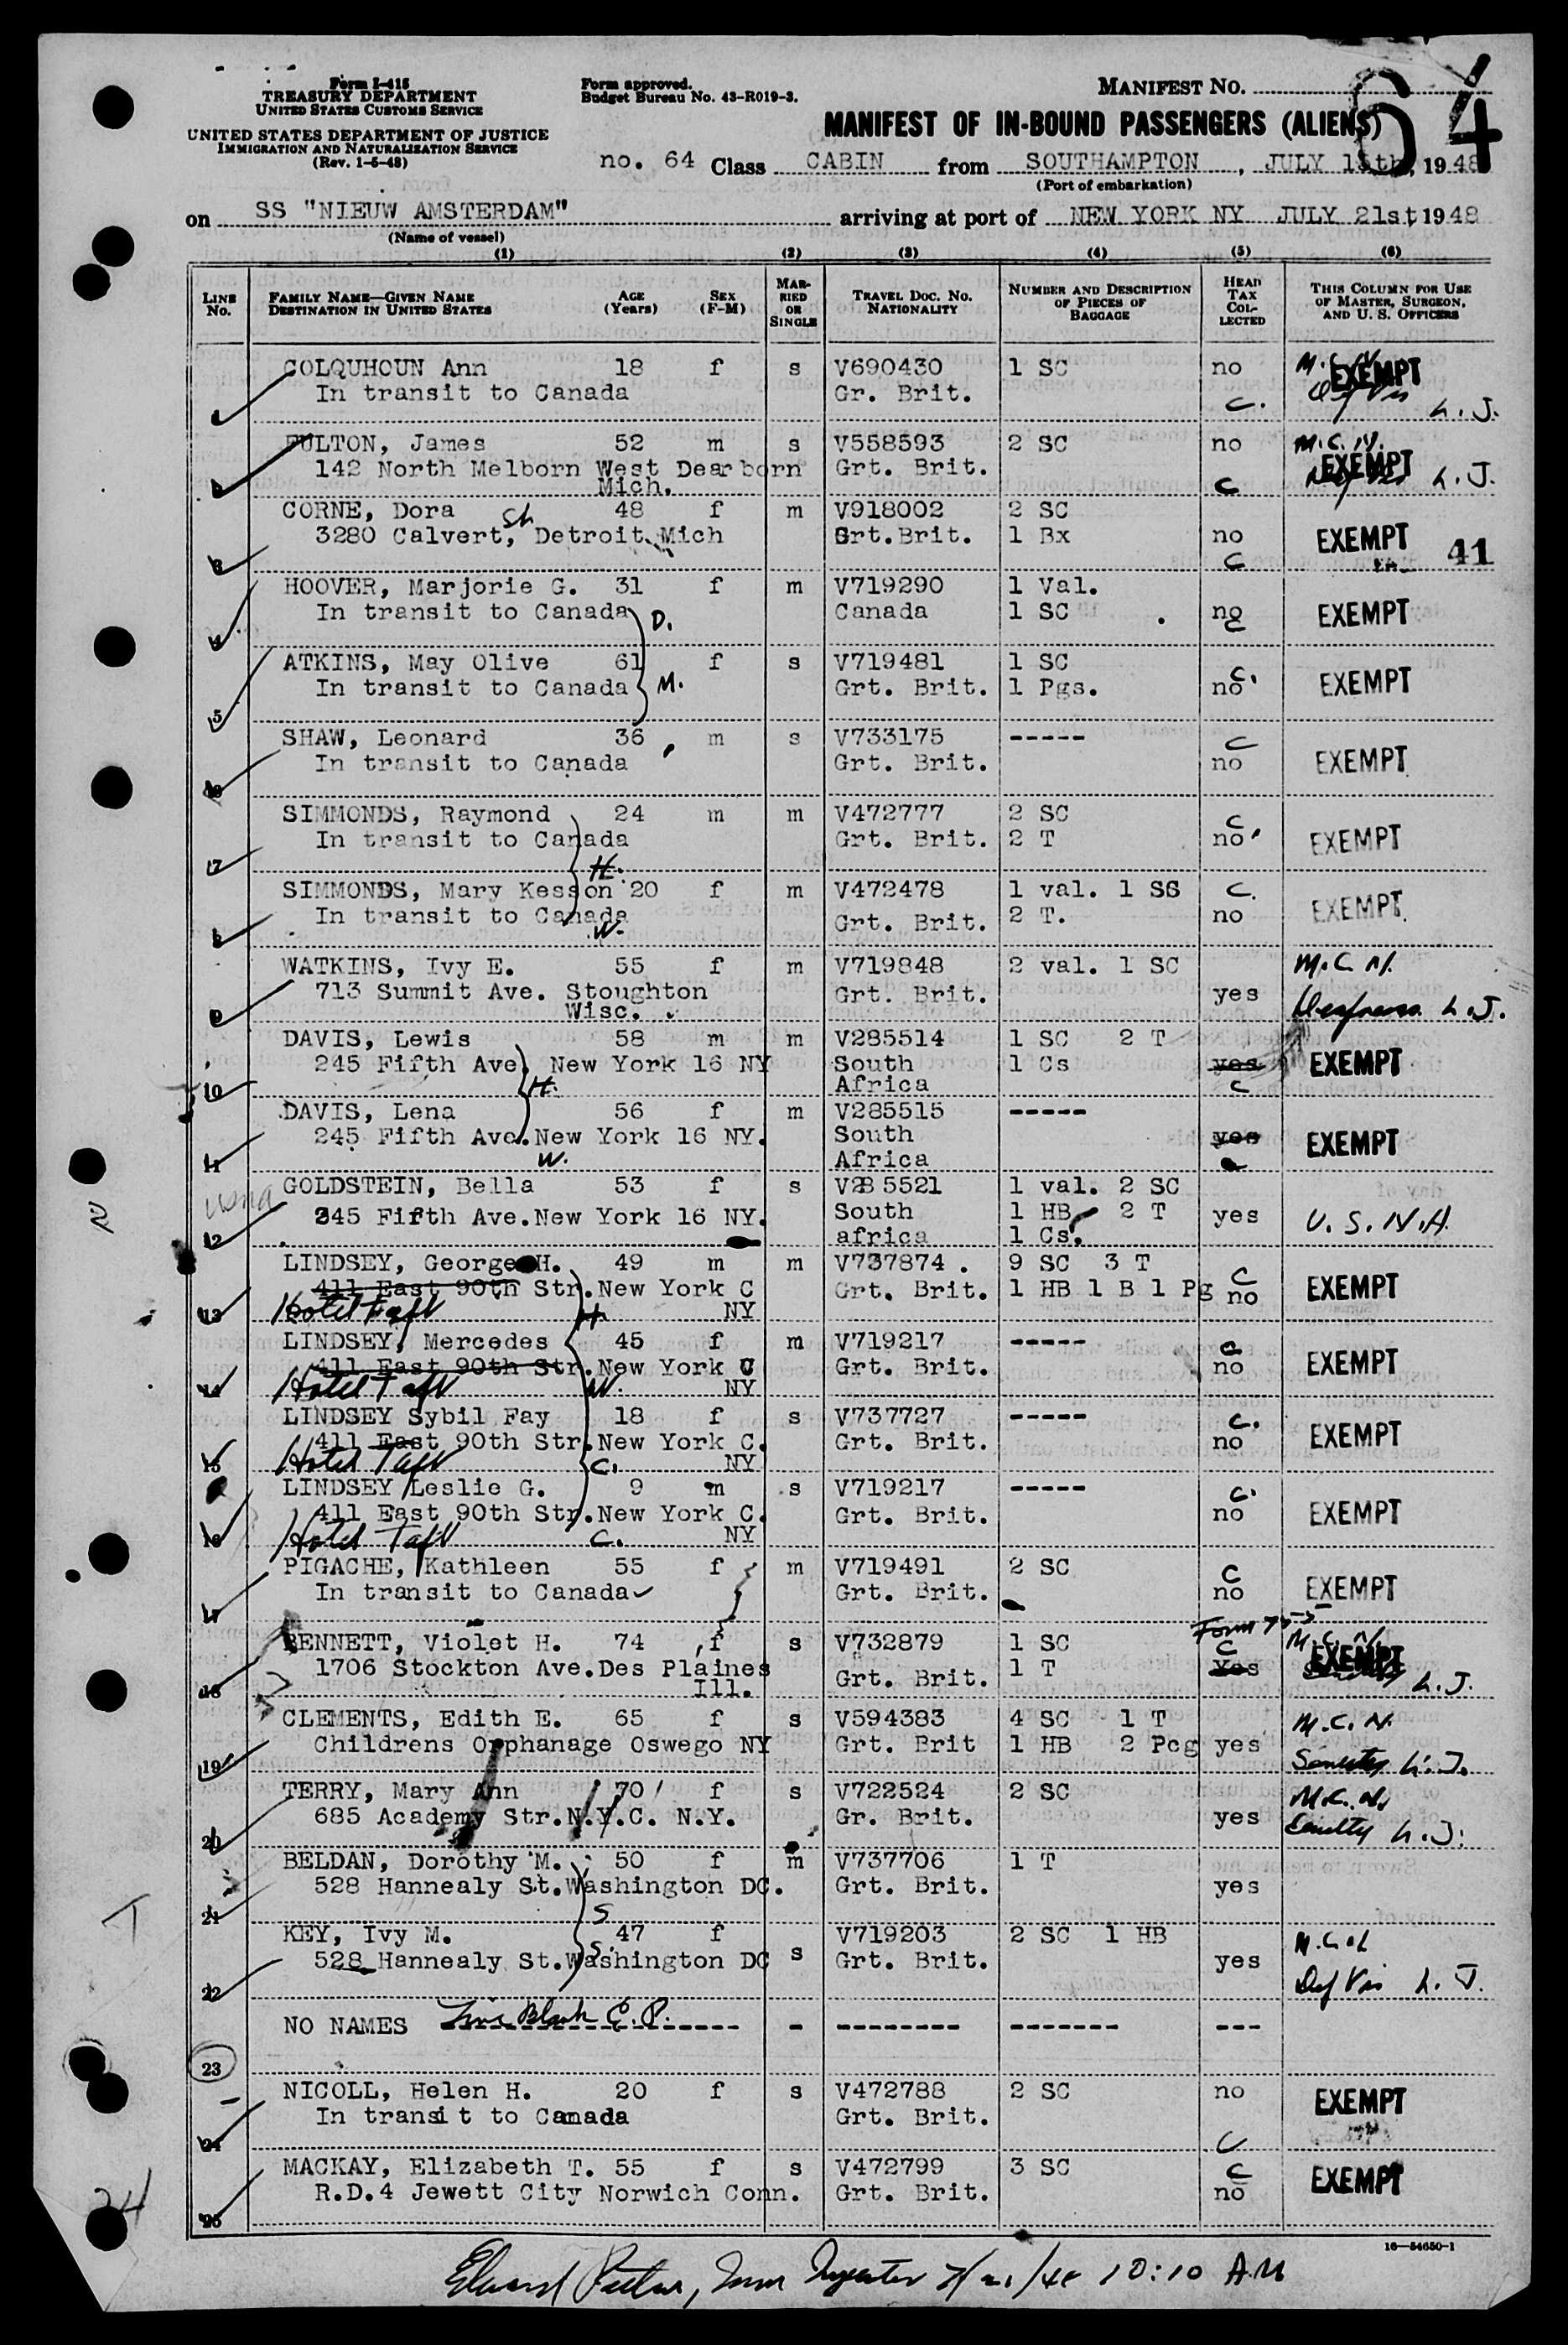 Form I-415
TREASURY DEPARTMENT
UNITED STATES CUSTOMS SERVICE
UNITED STATES DEPARTMENT OF JUSTICE
IMMIGRATION AND NATURALIZATION SERVICE
(Rev. 1-5-48)
Form approved.
Budget Bureau No. 43-R019-3.
MANIFEST NO. 64
MANIFEST OF IN-BOUND PASSENGERS (ALIENS)
no. 64 Class CABIN from SOUTHAMPTON, JULY , 1948
(Port of embarkation)
on SS "NIEUW AMSTERDAM" arriving at port of NEW YORK NY JULY 21st, 1948
(Name of vessel)
(1) (2) (3) (4) (5) (6)
LINE No. FAMILY NAME—GIVEN NAME DESTINATION IN UNITED STATES AGE (Years) SEX (F-M) MARRIED OR SINGLE TRAVEL DOC. NO. NATIONALITY NUMBER AND DESCRIPTION OF PIECES OF BAGGAGE HEAD TAX COLLECTED THIS COLUMN FOR USE OF MASTER, SURGEON, AND U. S. OFFICERS
COLQUHOUN Ann 18 f s V690430 1 SC no M.C.N. EXEMPT
1 In transit to Canada Gr. Brit. C. L.J.
FULTON, James 52 m s V558593 2 SC no M.C.N. EXEMPT
142 North Melborn West Dearborn Grt. Brit. L.J.
2 Mich. C
CORNE, Dora 48 f m V918002 2 SC
3280 Calvert, St Detroit Mich Grt.Brit. 1 Bx no EXEMPT 41
3 C
HOOVER, Marjorie G. 31 f m V719290 1 Val.
4 In transit to Canada D. Canada 1 SC no C EXEMPT
ATKINS, May Olive 61 f s V719481 1 SC C.
5 In transit to Canada M. Grt. Brit. 1 Pgs. no EXEMPT
SHAW, Leonard 36 m s V733175 ----- C
6 In transit to Canada Grt. Brit. no EXEMPT
SIMMONDS, Raymond 24 m m V472777 2 SC C
7 In transit to Canada Grt. Brit. 2 T no EXEMPT
H.
SIMMONDS, Mary Kesson 20 f m V472478 1 val. 1 SC C.
8 In transit to Canada Grt. Brit. 2 T. no EXEMPT
W.
WATKINS, Ivy E. 55 f m V719848 2 val. 1 SC M.C.N.
713 Summit Ave. Stoughton Grt. Brit. yes L.J.
9 Wisc.
DAVIS, Lewis 58 m m V285514 1 SC 2 T
245 Fifth Ave. New York 16 NY South 1 Cs yes EXEMPT
10 H. Africa C
DAVIS, Lena 56 f m V285515 -----
245 Fifth Ave.New York 16 NY. South yes EXEMPT
11 W. Africa
GOLDSTEIN, Bella 53 f s V285521 1 val. 2 SC
245 Fifth Ave.New York 16 NY. South 1 HB 2 T yes U.S.N.A.
12 africa 1 Cs.
LINDSEY, George H. 49 m m V737874 . 9 SC 3 T C
411 East 90th Str.New York C Grt. Brit. 1 HB 1 B 1 Pg no EXEMPT
13 Hotel Taft H NY
LINDSEY, Mercedes 45 f m V719217 ----- C
411 East 90th Str.New York C Grt. Brit. no EXEMPT
14 Hotel Taft W. NY
LINDSEY Sybil Fay 18 f s V737727 ----- C.
411 East 90th Str.New York C. Grt. Brit. no EXEMPT
15 Hotel Taft C. NY
LINDSEY Leslie G. 9 m s V719217 ----- C.
411 East 90th Str.New York C. Grt. Brit. no EXEMPT
16 Hotel Taft C. NY
PIGACHE, Kathleen 55 f m V719491 2 SC C
17 In transit to Canada Grt. Brit. no EXEMPT
Form
BENNETT, Violet H. 74 f s V732879 1 SC C M.C.N.
1706 Stockton Ave.Des Plaines Grt. Brit. 1 T yes EXEMPT
18 Ill. L.J.
CLEMENTS, Edith E. 65 f s V594383 4 SC 1 T M.C.N.
19 Childrens Orphanage Oswego NY Grt. Brit 1 HB 2 Pcg yes L.J.
TERRY, Mary Ann 70 f s V722524 2 SC M.C.N.
20 685 Academy Str.N.Y.C. N.Y. Gr. Brit. yes L.J.
BELDAN, Dorothy M. 50 f m V737706 1 T
21 528 Hannealy St.Washington DC. Grt. Brit. yes
S
KEY, Ivy M. 47 f s V719203 2 SC 1 HB
22 528 Hannealy St.Washington DC Grt. Brit. yes L.J.
S.
NO NAMES Line Blank E.P. - -------- ------- ---
23
NICOLL, Helen H. 20 f s V472788 2 SC no EXEMPT
24 In transit to Canada Grt. Brit. C
MACKAY, Elizabeth T. 55 f s V472799 3 SC C EXEMPT
25 R.D.4 Jewett City Norwich Conn. Grt. Brit. no
16—54650-1
Edward 7/21/48 10:10 AM
24